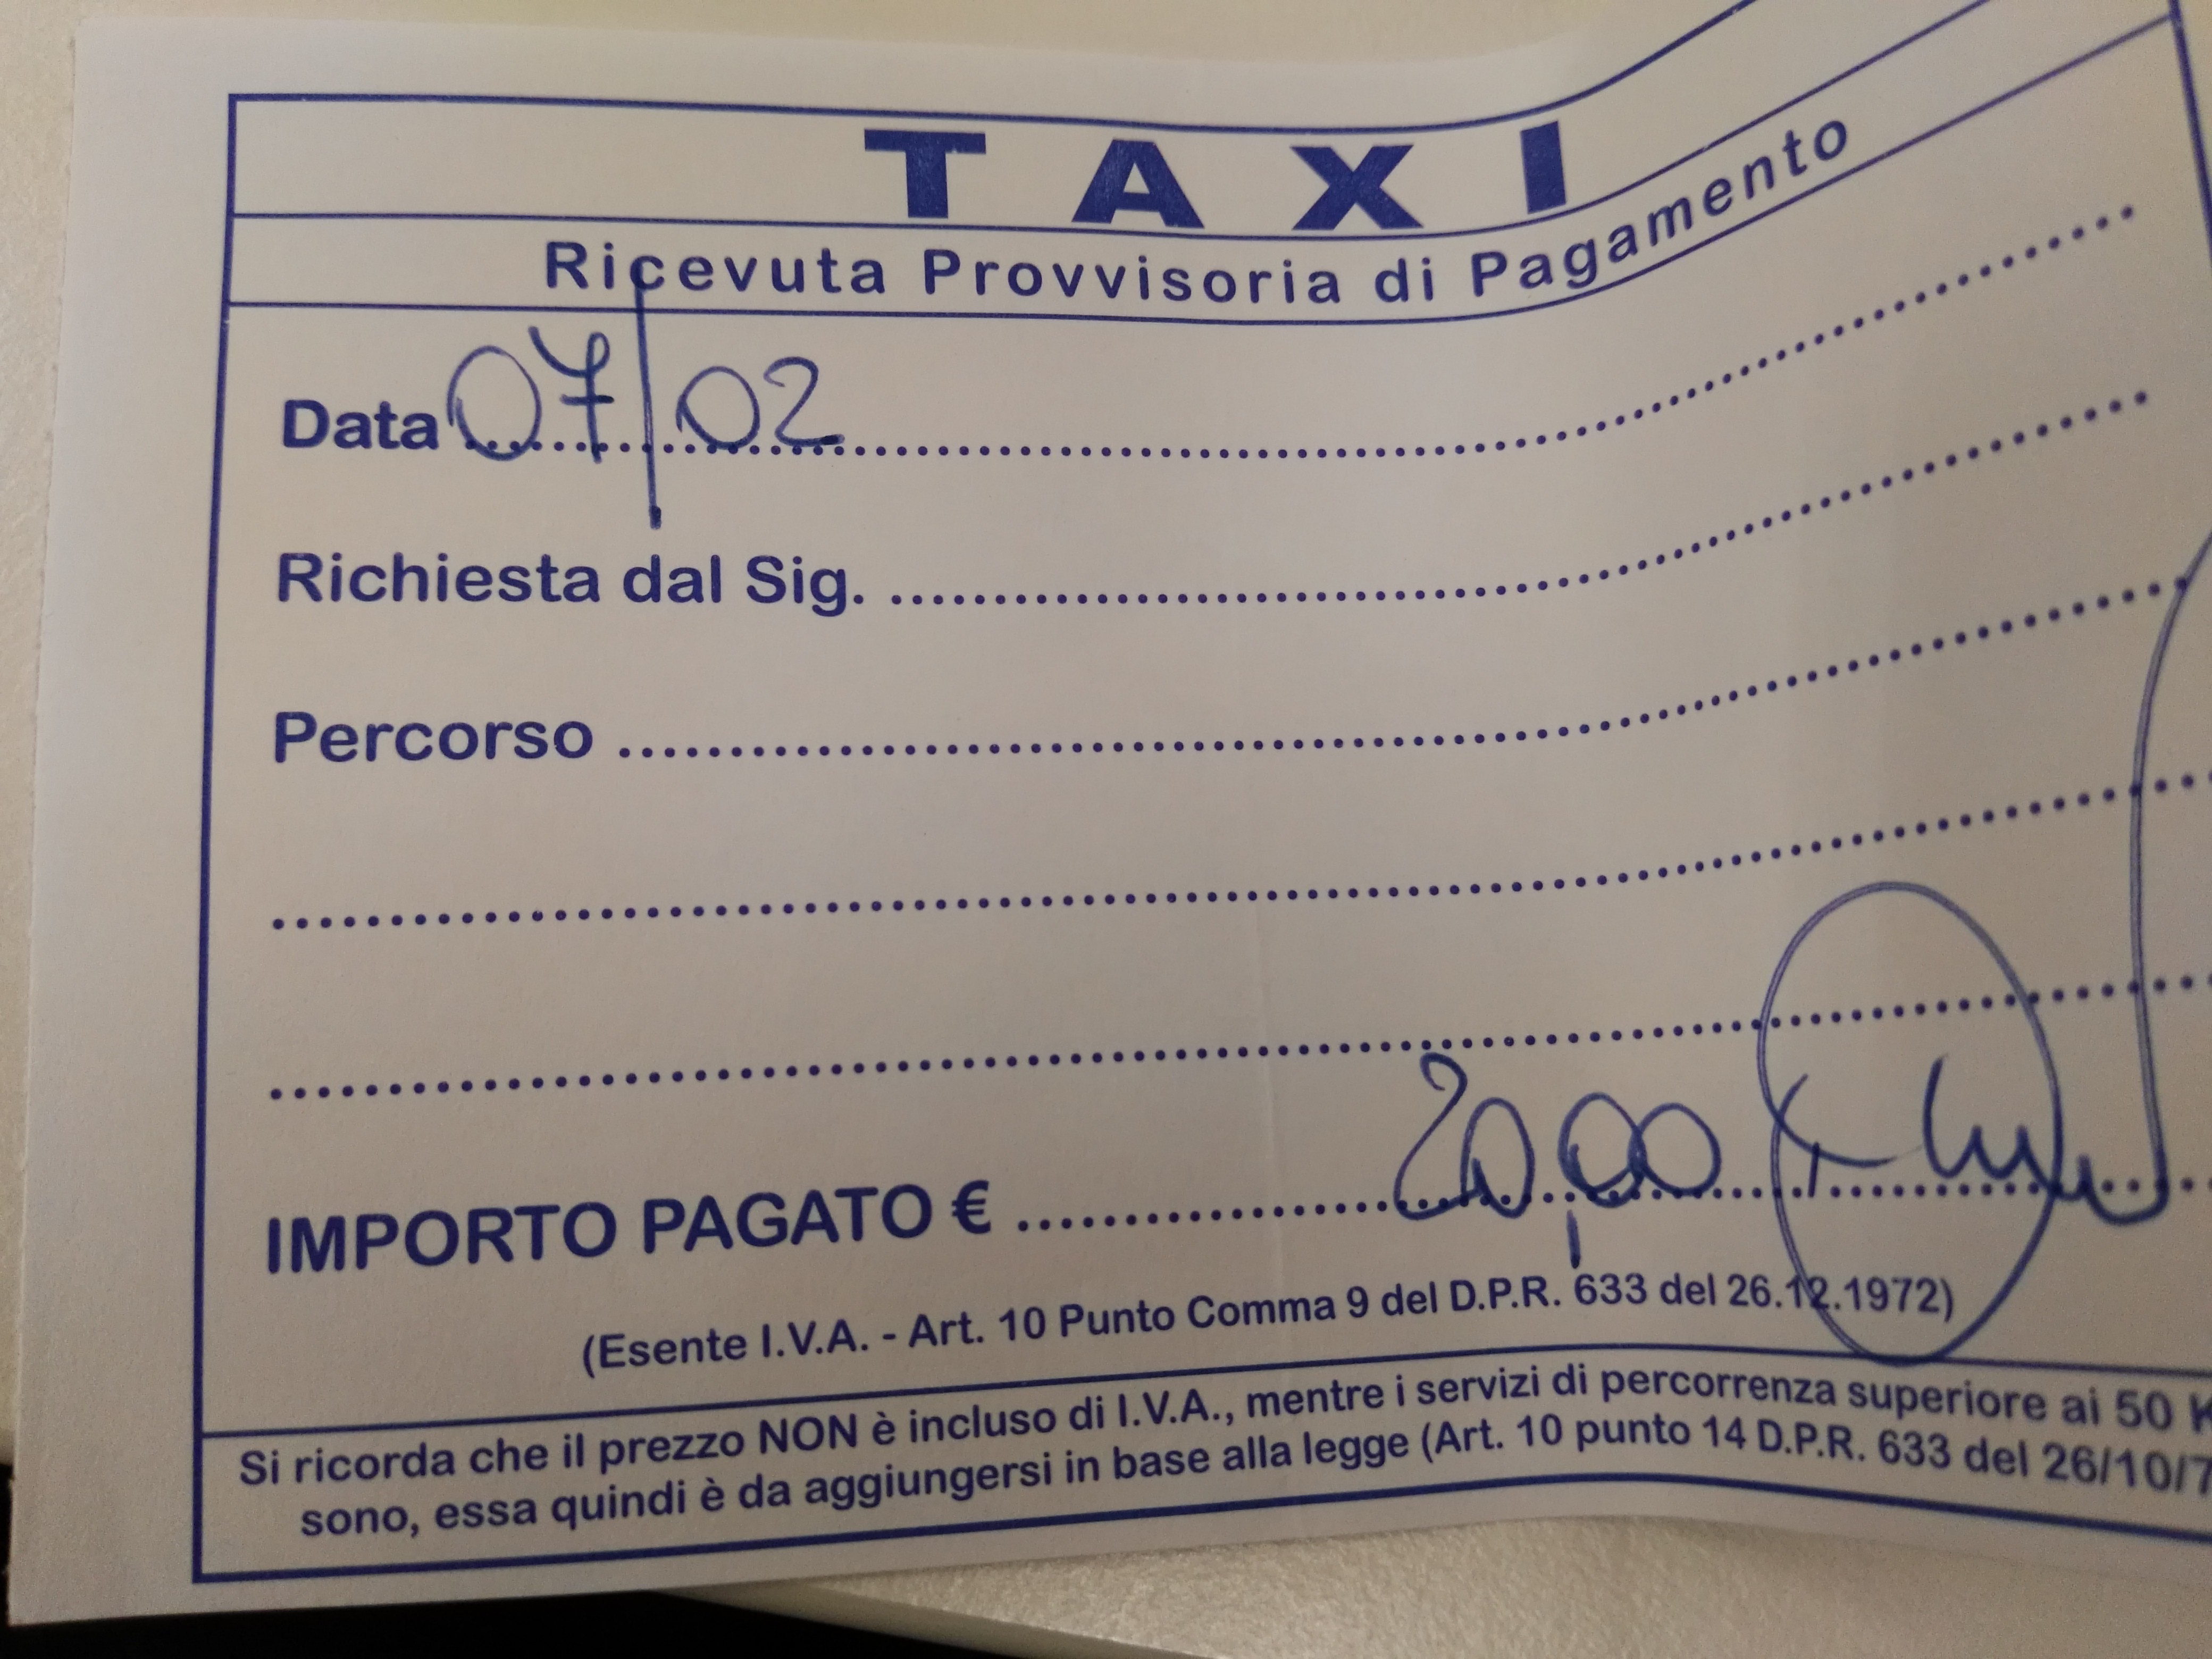 TAXI
Ricevuta Provvisoria di Pagamento
Data 07/02
Richiesta dal Sig.
Percorso
IMPORTO PAGATO € 20,00
(Esente I.V.A. - Art. 10 Punto Comma 9 del D.P.R. 633 del 26.12.1972)
Si ricorda che il prezzo NON è incluso di I.V.A., mentre i servizi di percorrenza superiore ai 50 K
sono, essa quindi è da aggiungersi in base alla legge (Art. 10 punto 14 D.P.R. 633 del 26/10/7